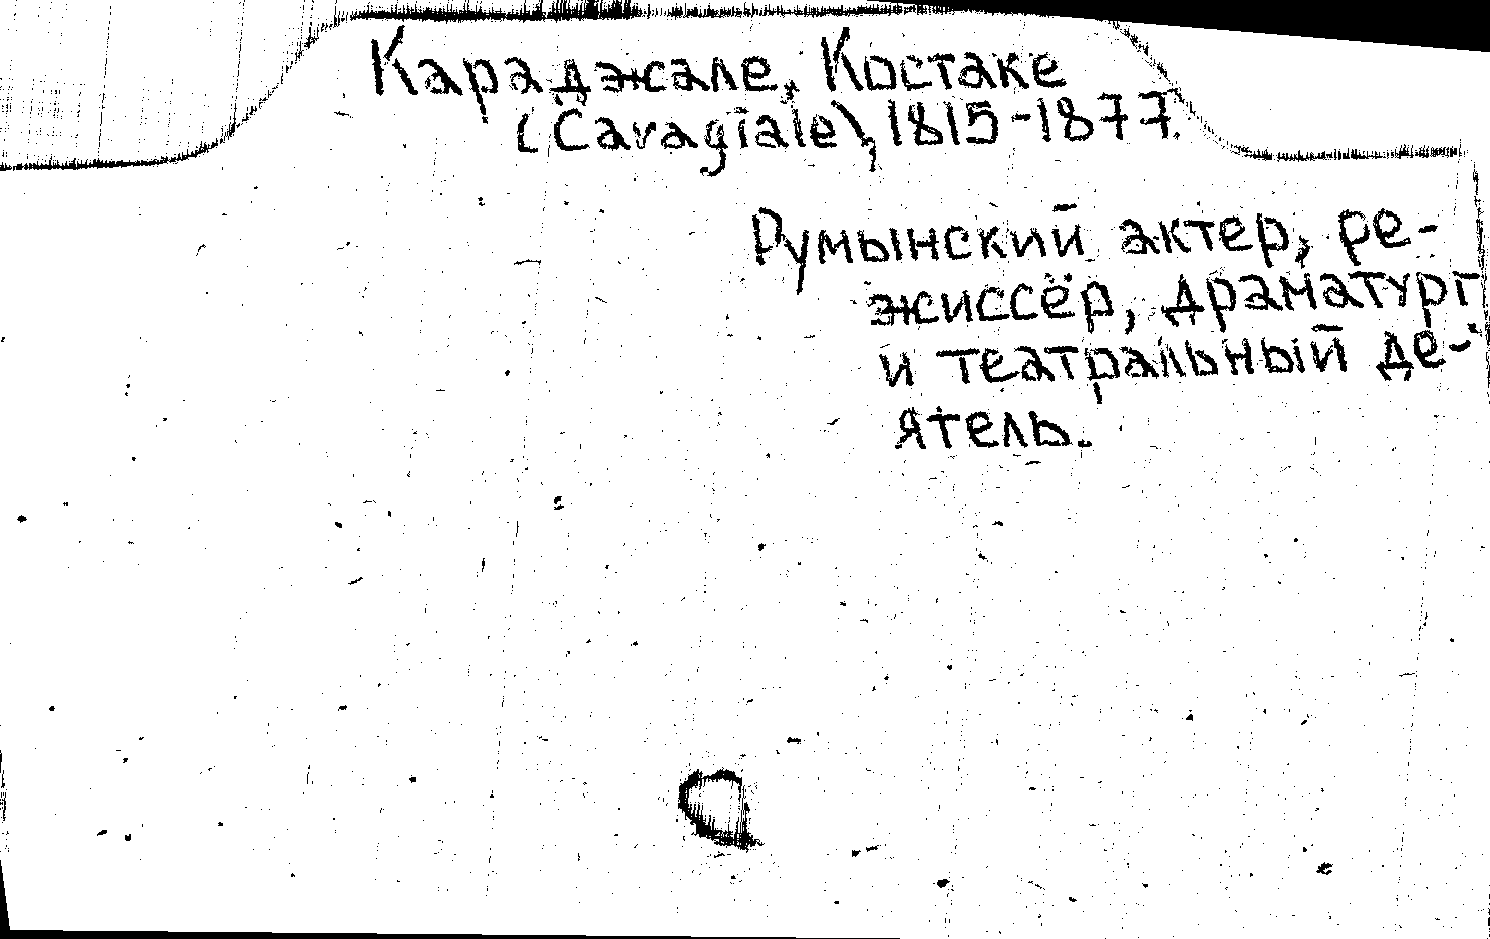 Караджале, Костаке
(Caragiale), 1815-1877.
Румынский актер, ре-
жиссёр, драматург
и театральный де-
ятель.